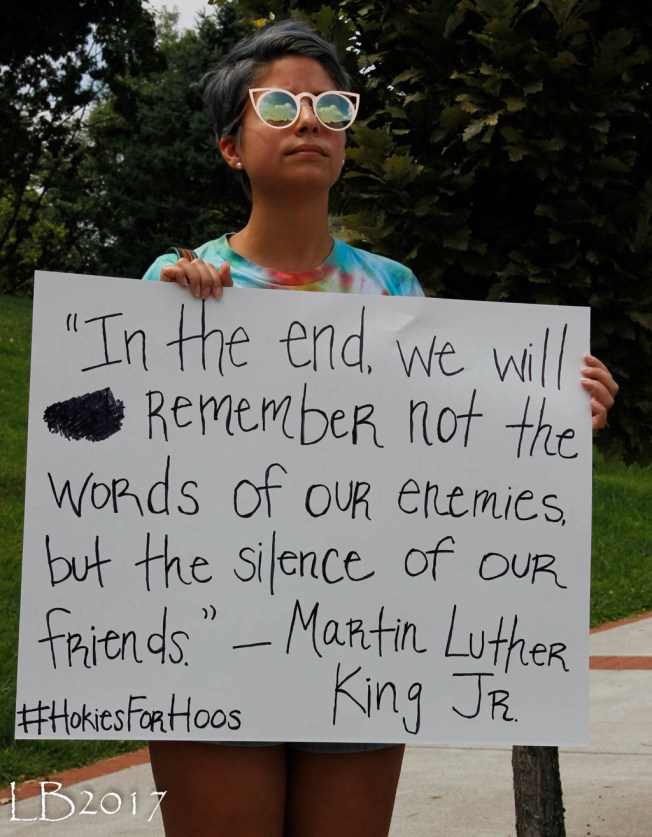 "In the end, we will
Remember not the
words of our enemies,
but the silence of our
friends." – Martin Luther
King Jr.
#HokiesForHoos
LB2017